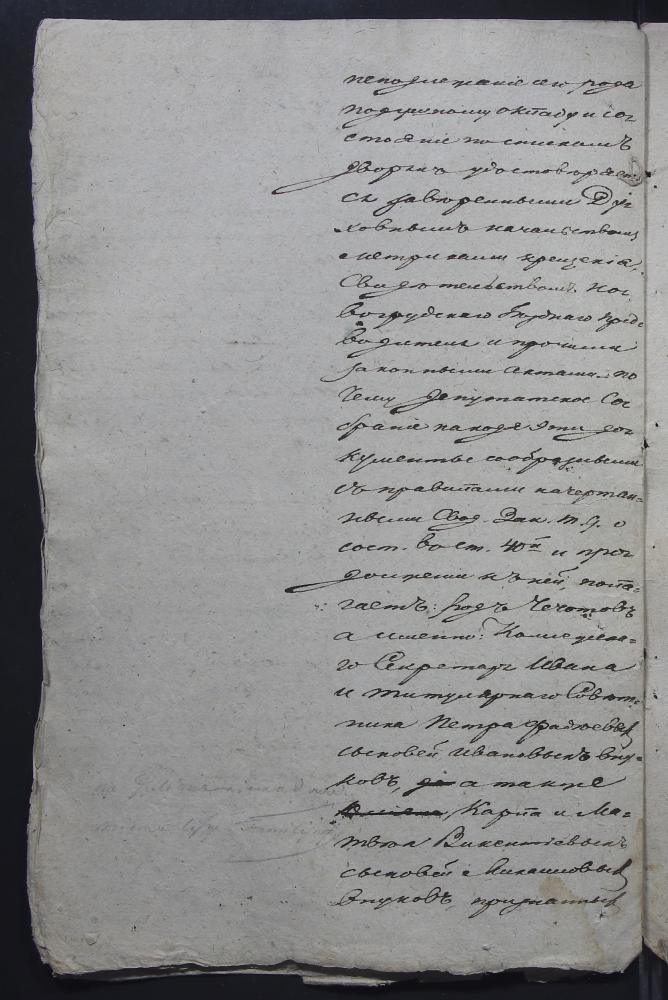 неподлежаніе сего рода
подушному окладу и со-
стояніе по спискамъ
дворянъ удостовѣряет-
ся завѣренными Ду-
ховнымъ начальствомъ
метриками крещенія,
Свидѣтельствомъ Но-
вогрудскаго Уѣзднаго Пред-
водителя и прочими
законными Актами. по
чему Депутатское Со-
браніе находя эти до-
кументы сообразными
съ правилами начертан-
ными Свод. Зак. т. 9. о
сост. въ ст. 40й и про-
долженіи къ ней, пола-
гаетъ: родъ Чечотовъ
а именно: Коллежска-
го Секретаря Ивана
и титулярнаго Совѣт-
ника Петра Фадѣевыхъ
сыновей Ивановыхъ вну-
ковъ, а также
Карпа и Ма-
твѣя Викентіевыхъ
сыновей Михайловыхъ
внуковъ, признанныхъ